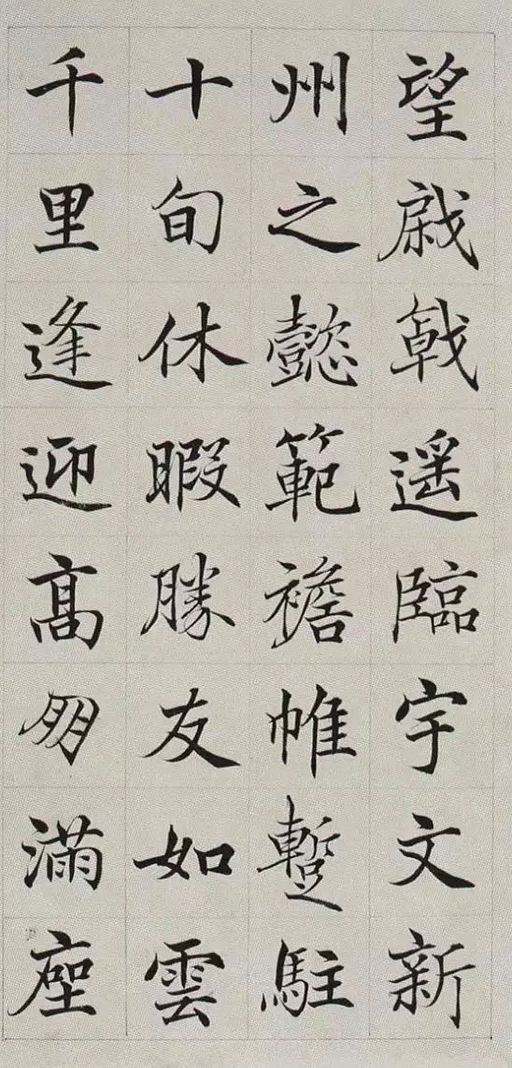 望㦸㦸遥臨宇文新
州之懿範襜帷蹔駐
十旬休暇勝友如雲
千里逢迎髙朋滿座